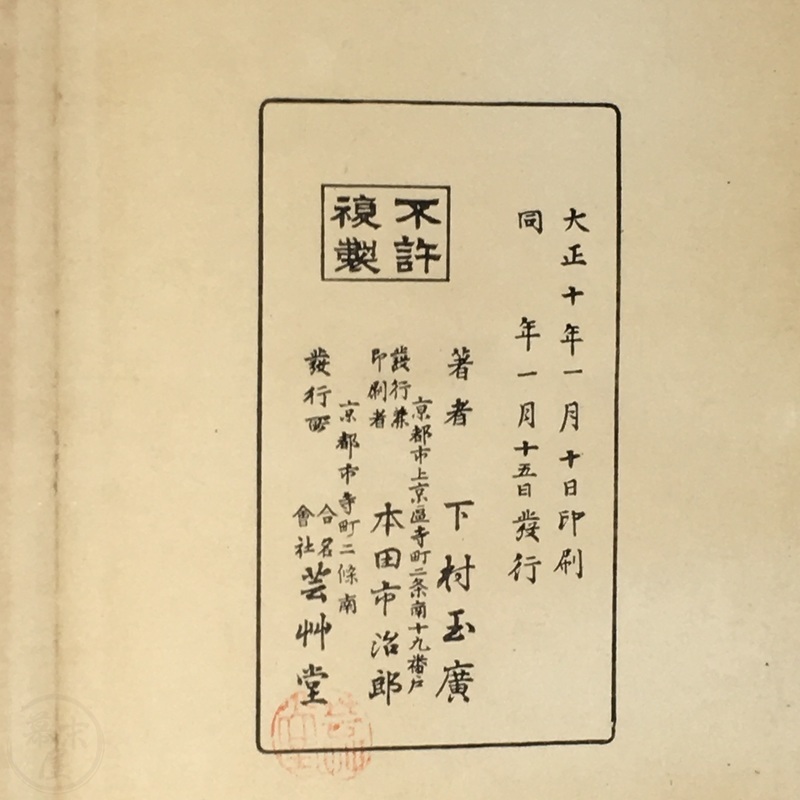 大正十年一月十日印刷
同年一月十五日發行
不許
複製
著者 下村玉廣
京都市上京區寺町二条南十九番戶
發行兼
印刷者 本田市治郎
京都市寺町二條南
發行所 合名
會社 芸艸堂